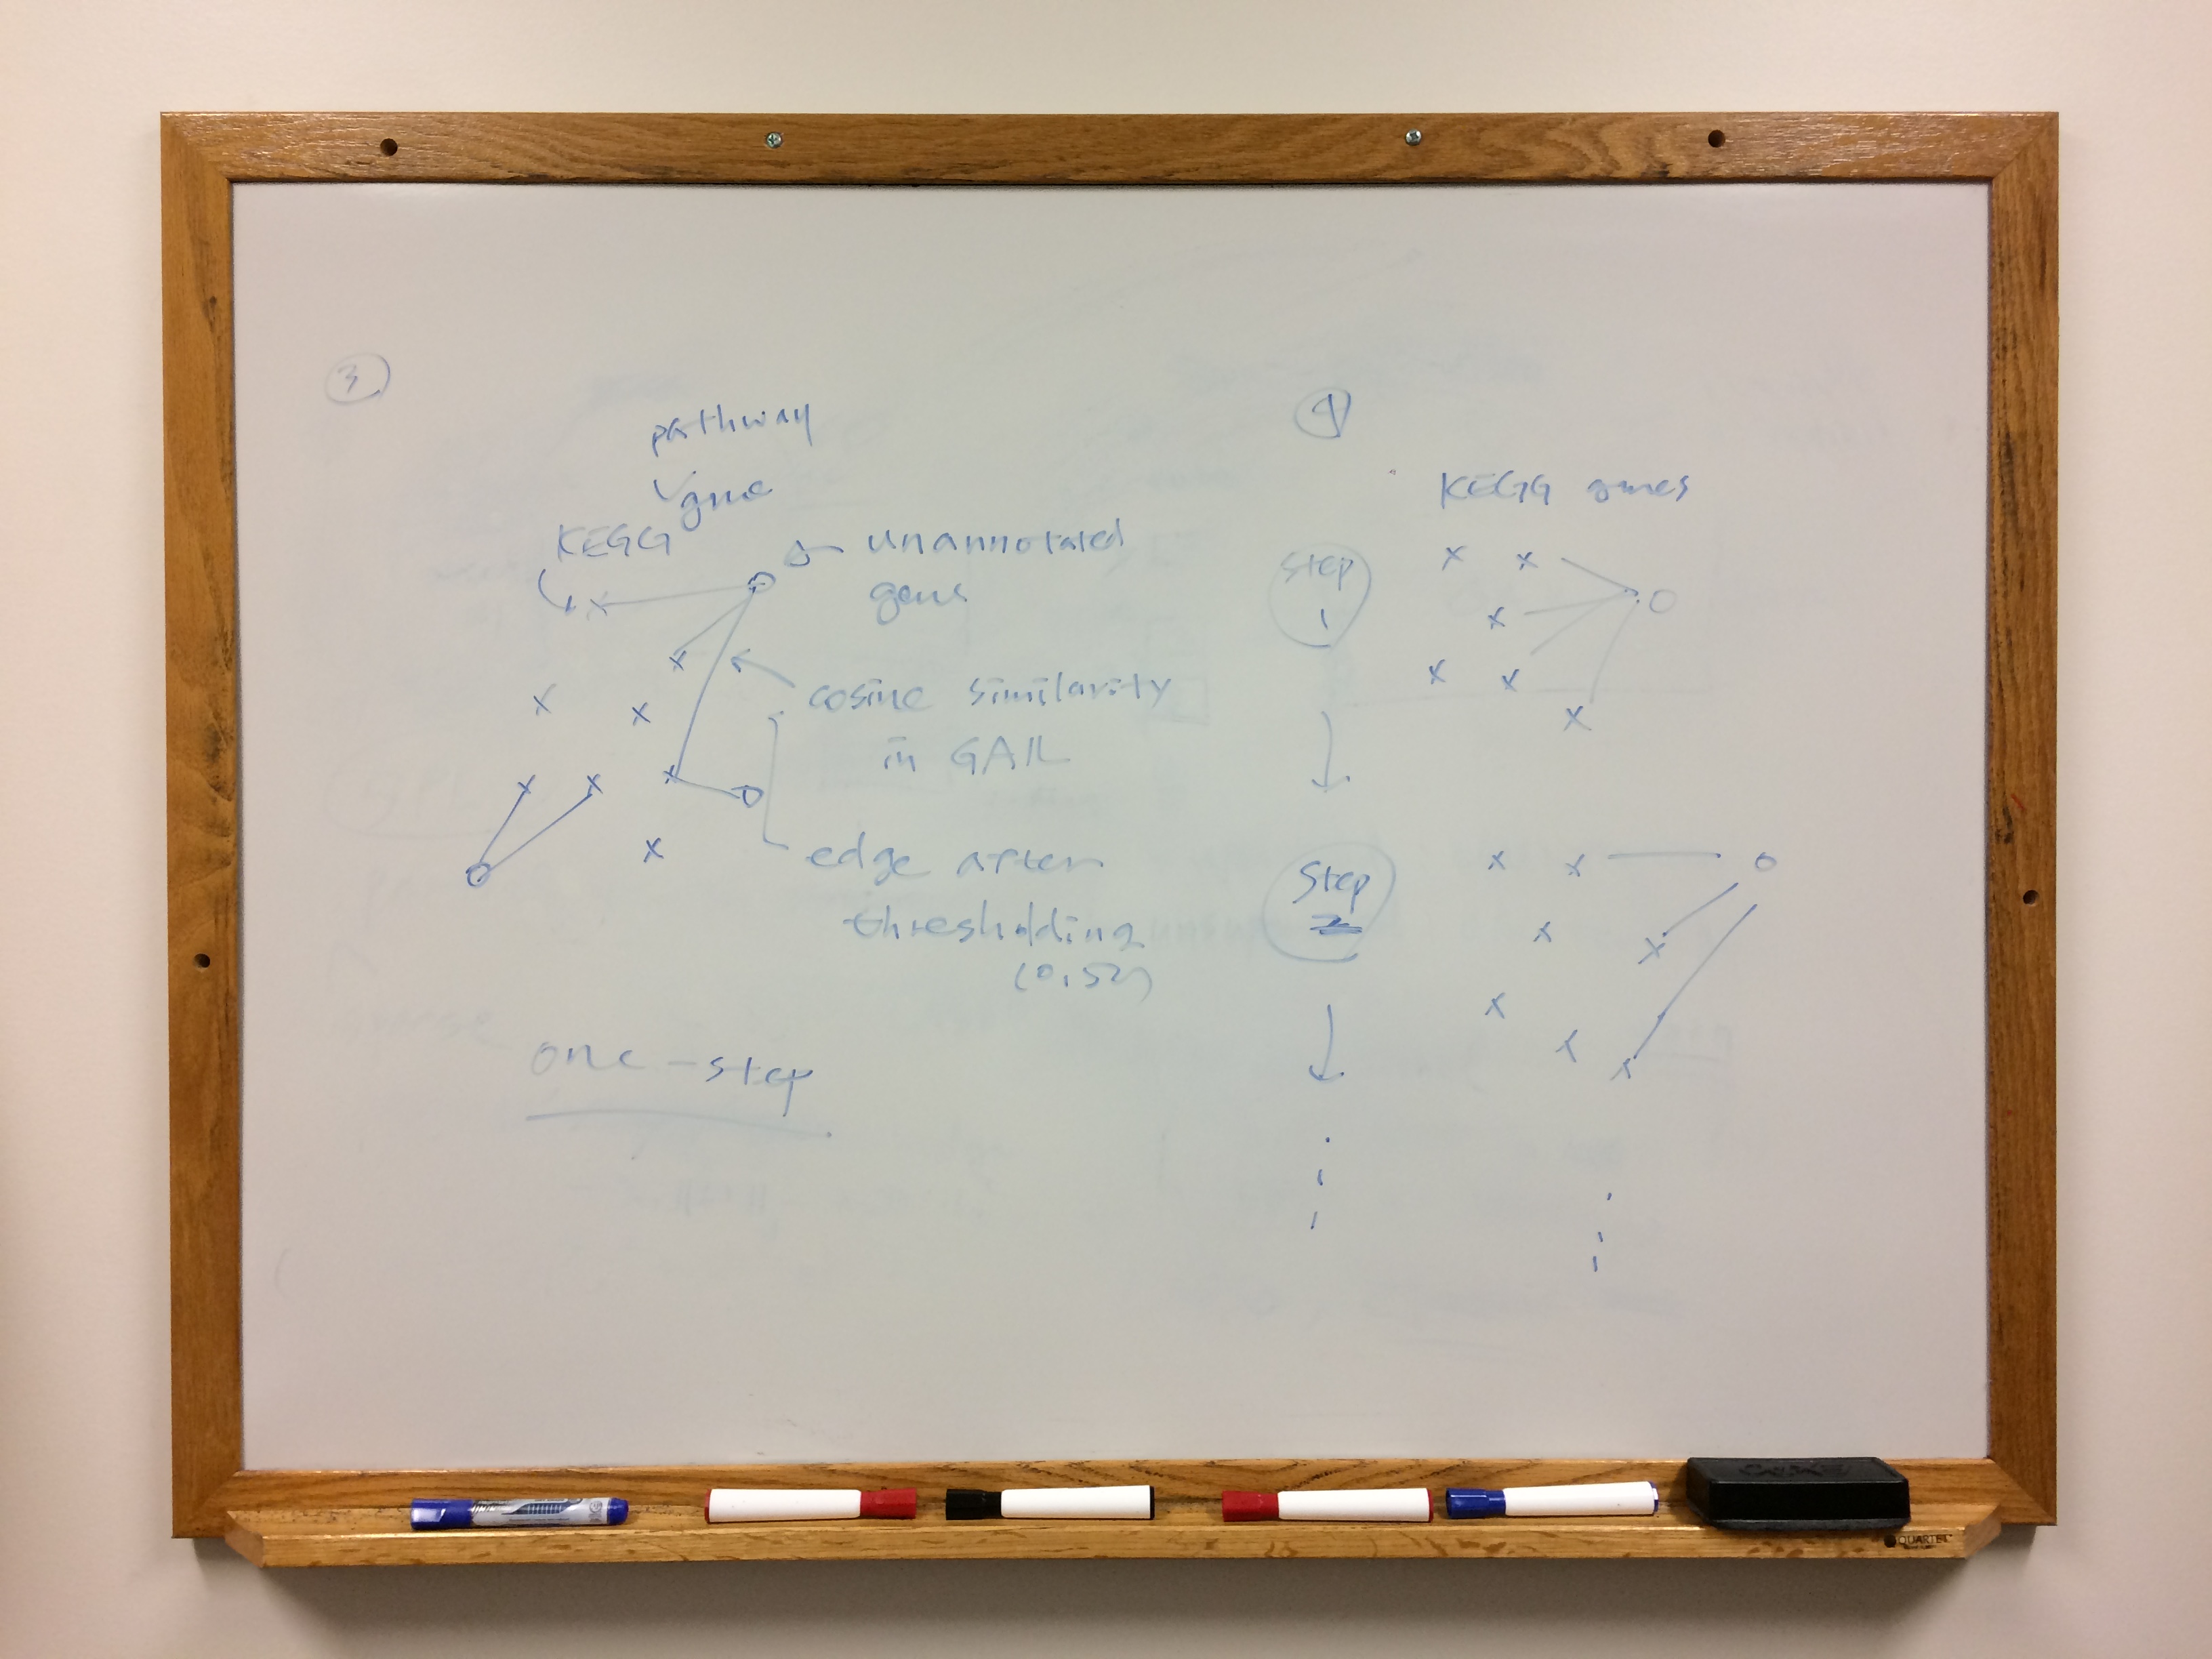 3
pathway
gene
KEGG
unannotated
gene
cosine similarity
in GAIL
edge after
thresholding
(0.52)
one-step
4
KEGG genes
Step
1
Step
2
QUARTET